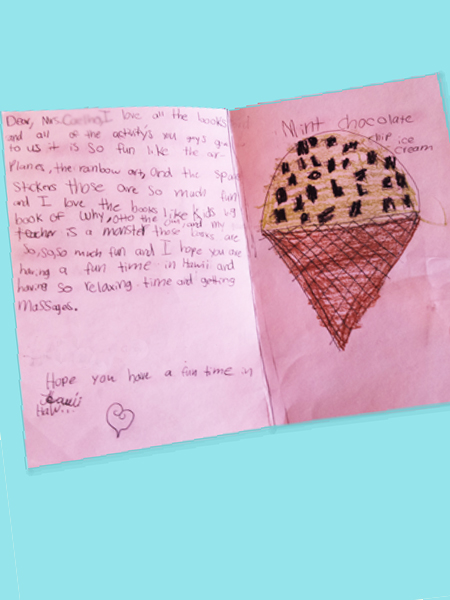 Dear, Mrs. I love all the books
and all of the activitys you guys
to us it is so fun like the air-
Planes, the rainbow art, And the
Stickers Those are so much fun
and I love the books like Kids
book of why, Otto the and my
teacher is a monster those books are
so, so, so much fun and I hope you are
having a fun time in Hawii and
having so relaxing time and getting
Massages.
Hope you have a fun time in
Haw...
Mint chocolate
chip ice
cream